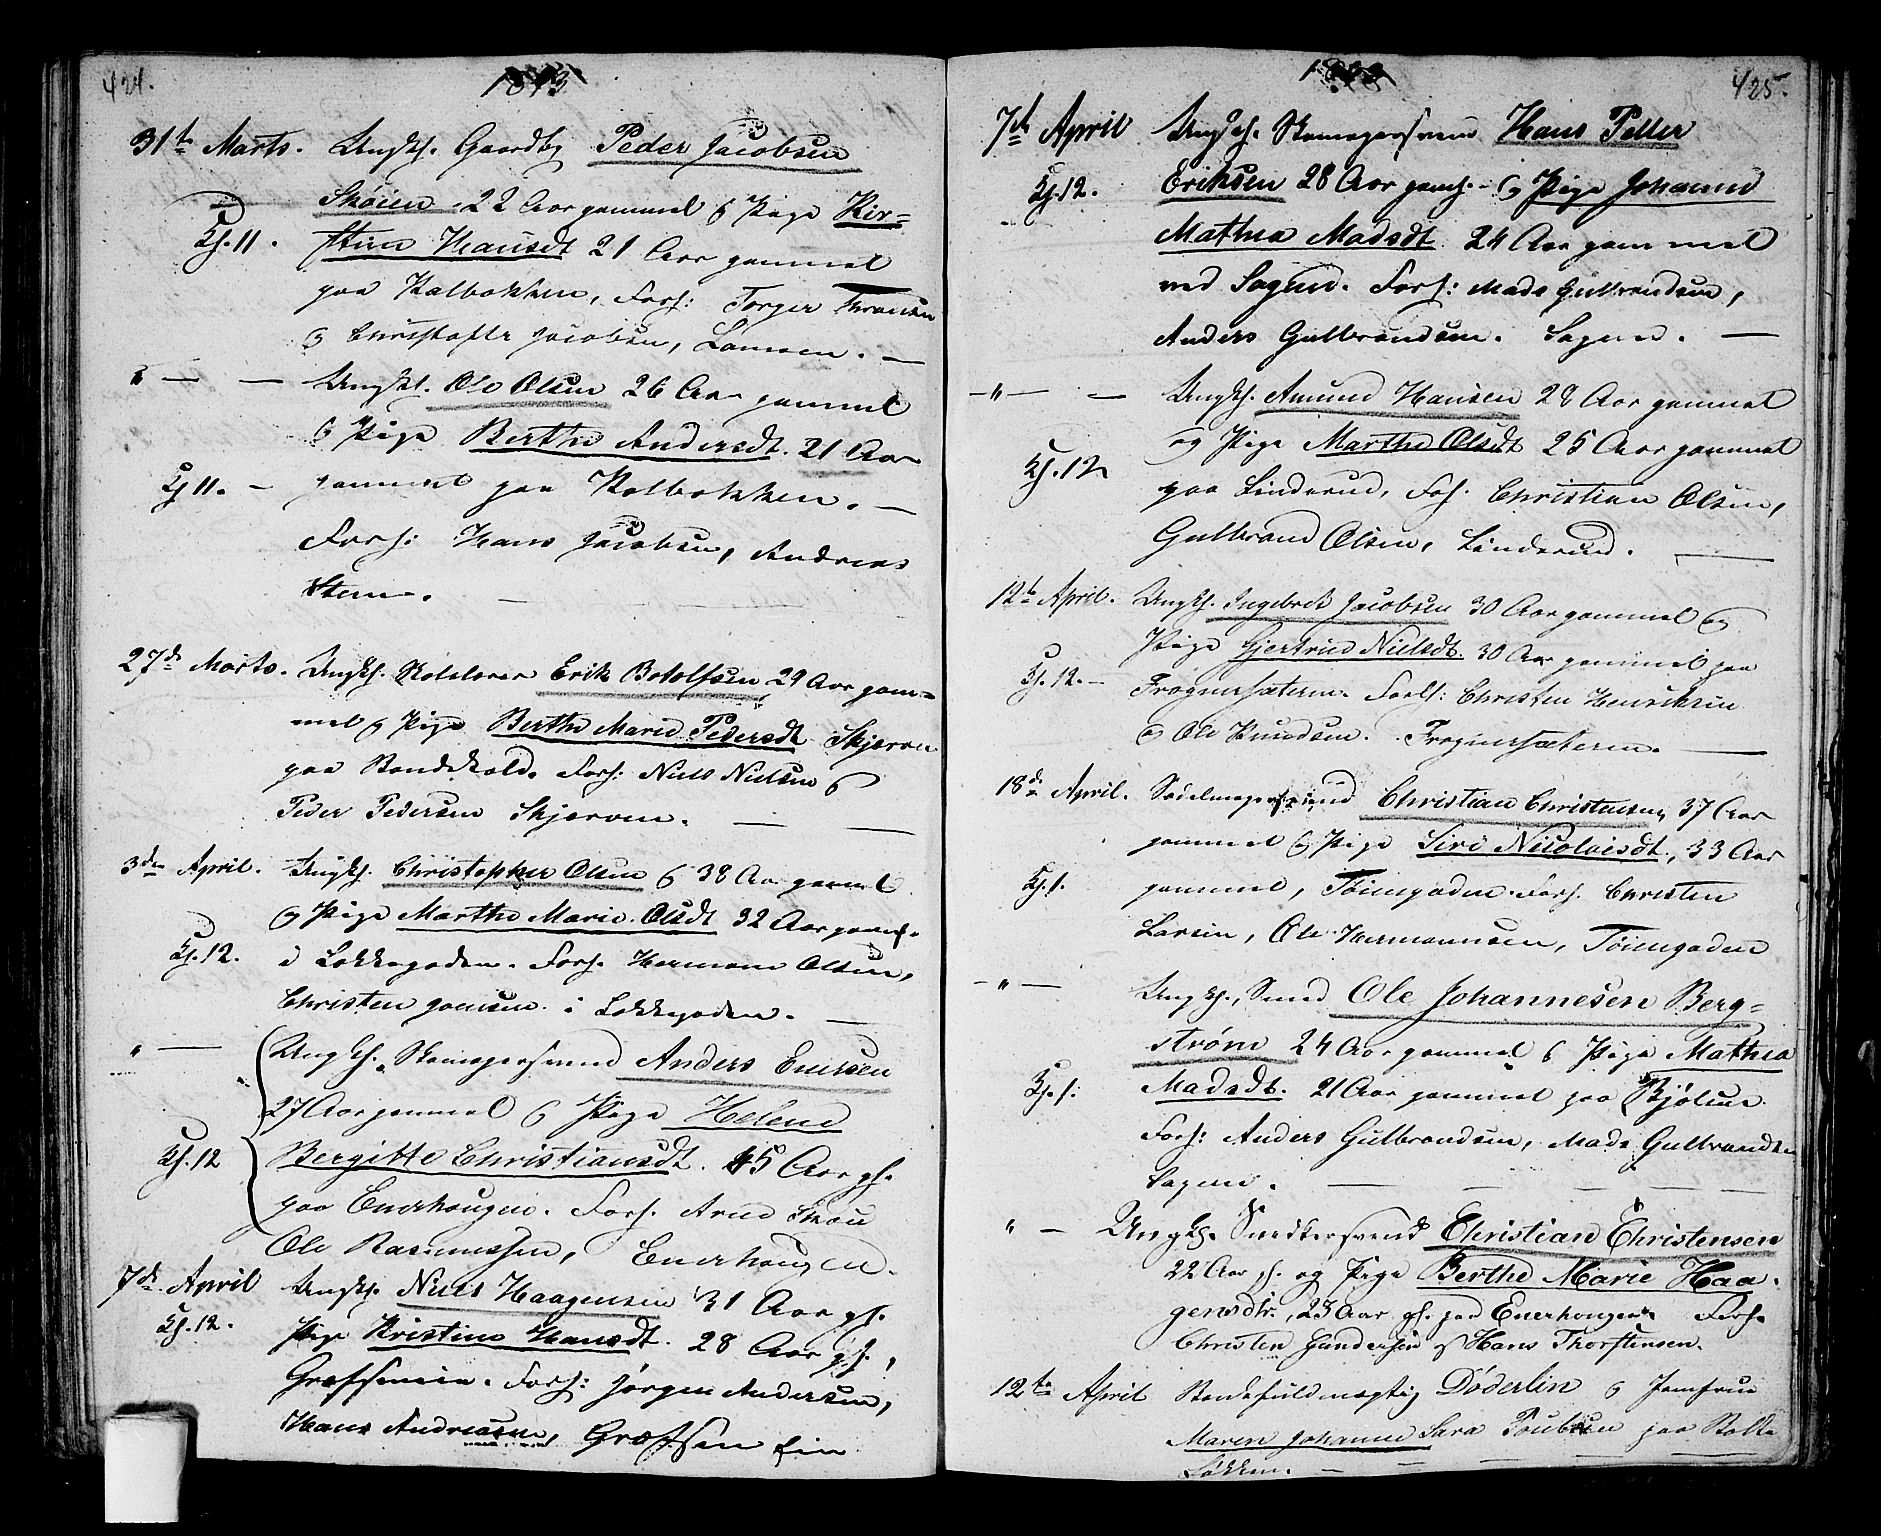 424.
1843
31te Marts. Ungk. Gaardbr. Peder Jacobsen
Skøien 22 Aar gammel & Pige Kir-
Kj. 11. stine Hansdt 21 Aar gammel
paa Kalbakken, Forl: Torger Thronsen
& Christoffer Jacobsen,
" — — Ungk. Ole Olsen 26 Aar gammel
& Pige Berthe Andersdt. 21 Aar
Kj 11. — gammel paa Kalbakken. —
Forl: Hans Jacobsen, Andreas
27de Marts. Ungk. Erik Botolfsen 29 Aar gam-
mel & Pige Berthe Marie Pedersdt Skjerven
paa Forl: Niels Nielsen &
Peder Pedersen Skjerven. — —
3die April. Ungk. Christopher Olsen & 38 Aar gammel
& Pige Marthe Marie Olsdt 32 Aar gaml.
Kj. 12. i Lakkegaden. Forl. Hermann Olsen,
Christen Jansen i Lakkegaden. —
" — Ungk. Skomagersvend Anders Enersen
27 Aar gammel & Pige Helene
Kj. 12 Bergitte Christiansdt. 45 Aar gl.
paa Enerhougen. Forl. Arne
Ole Rasmussen, Enerhougen.
7de April Ungk. Niels Haagensen 31 Aar gl.
Kj. 12. Pige Kristine Hansdt. 28 Aar gl.,
Græfseneie. Forl: Jørgen Andersen,
Hans Andreasen, Græfsen Eie
1843
425.
7de April Ungk. Skomagersvend Hans Petter
Kj. 12. Eriksen 28 Aar gaml. & Pige Johanne
Mathea Madsdt. 24 Aar gammel
ved Sagene. Forl: Mads Gulbrandsen,
Anders Gulbrandsen. Sagene. —
— " — — Ungk. Amund Hansen 28 Aar gammel
og Pige Marthe Olsdt 25 Aar gammel
Kj. 12 paa Linderud, Forl. Christian Olsen,
Gulbrand Olsen, Linderud. —
12te April. Ungk. Ingebrek Jacobsen 30 Aar gammel &
Pige Gjertrud Nielsdt. 30 Aar gammel paa
Kj. 12. — Frognersæteren. Forl: Christen Henriksen
& Ole Knudsen. Frognersæteren. —
18de April. Sadelmagersvend Christian Christensen, 37 Aar
gammel & Pige Siri Nicolaisdt., 33 Aar
Kj. 1. gammel, Tøiengaden. Forl. Christen
Larsen, Ole Hermannsen, Tøiengaden
— " — Ungk., Smed Ole Johannesen Berg-
strøm 24 Aar gammel & Pige Mathea
Kj. 1. Madsdt. 21 Aar gammel paa Bjølsen
Forl: Anders Gulbrandsen, Mads Gulbrandsen
Sagene. — — — —
" — Ungk. Snedkersvend Christian Christensen
22 Aar gl. og Pige Berthe Marie Haa-
gensdtr., 23 Aar gl. paa Enerhougen Forl.
Christen Gundersen og Hans Thorstensen.
12te April Døderlin & Jomfrue
Maren Johanne Sara paa
Løkken. — — — —